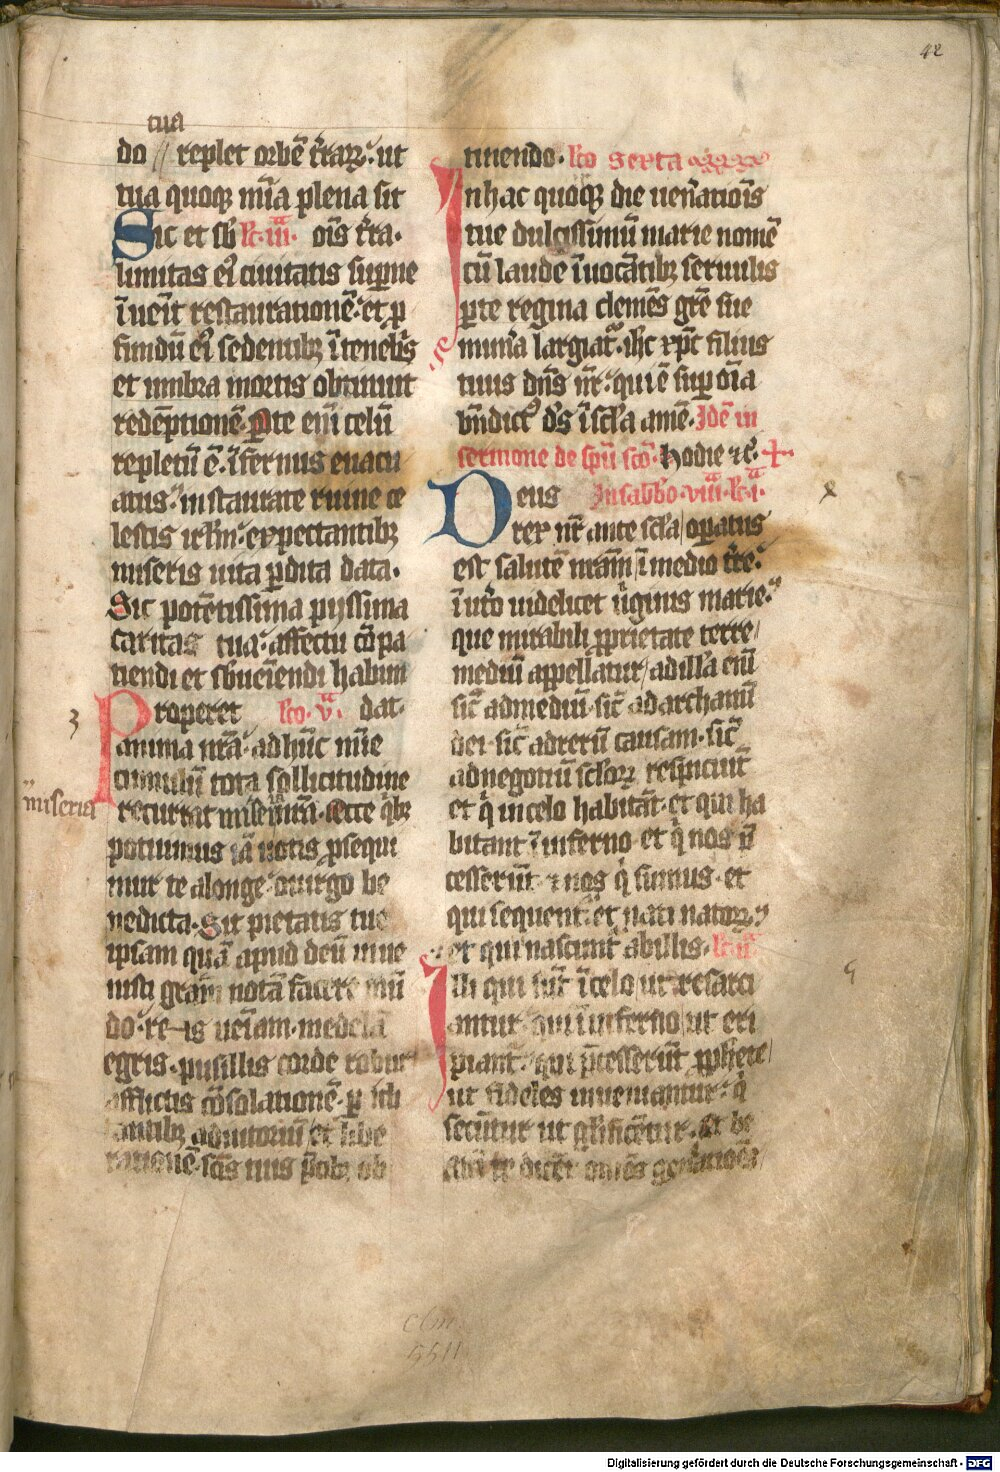 42
tua
do replet orbē t̄rarꝝ. ut
tua quoqꝫ mīa plena sit
Sic et sb̄ lc̄. iiii. ois t̄ra.
limitas ei ciuitatis suꝑne
īuēit restaurationē. et ꝓ
fundū ei sedentibꝫ ī teneb̄s
et umbra mortis obtinuit
redēptionē. Per te enī celū
repletū ē. īfernus euacu
atus. instaurate ruine ce
lestis irl̄m. expectantibꝫ
miseris uita ꝑdita data.
Sic potētissima pijssima
caritas tua. affectu cōpa
tiendi et sb̄ueīendi habun
Properet lc̄o. v. dat.
anima nr̄a. ad hūc nūe
cumulū tota sollicitudine
miseria
recurrat miseria nr̄a. Ecce qb̄ꝫ
potuimus iā uotis ꝓsequi
mur te alonge o uirgo be
nedicta. Sit pietatis tue
ipsam quā apud deū inue
nisti grām notā facere mū
do. re is ueīam. medelā
egris. pusillis corde robur
afflictis cōsolationē. ꝑicli
tantibꝫ adiutoriū et libe
rationē.
tiuendo. lc̄o sexta
In hac quoqꝫ die uen̄atiōis
tue dulcissimū marie nomē
cū laude īuocātibꝫ seruulis
ꝑ te regina clemēs grē sue
mun̄a largiat̄. ih̄c xp̄c filius
tuus dn̄s nr̄. qui ē suꝑ om̄ia
bn̄dict9 ds̄ ī scl̄a amē. Idē in
sermone de spū scō. Hodie ⁊c̄.
Deus In sabbo. viii. lc̄. i.
rex nr̄ ante scl̄a oꝑatus
est salutē nrām ī medio t̄re.
ī ut̄o uidelicet ūginis marie.
que mirabili ꝓprietate terre
mediū appellatur ad illā enī
sic̄ ad mediū. sic̄ ad archanū
dei sic̄ ad rerū causam. sic̄
ad negotiū scl̄orꝝ respiciūt
et q̄ in celo habitāt. et qui ha
bitant ī inferno et q̄ nos p̄
cesserūt. ⁊ nos q̄ sumus. et
qui sequent̄. et nati natorꝝ
et qui nascunt̄ ab illis. lc̄. ii.
Illi qui sūt ī celo ut resarci
antur. qui ī inferno ut eri
piant̄. qui p̄cesserūt ꝓphete
ut fideles inueniantur. q̄
secūtur ut gl̄ificētur. Et be
atā te dicēt omēs gen̄atiōes
clm
5511
Digitalisierung gefördert durch die Deutsche Forschungsgemeinschaft - DFG